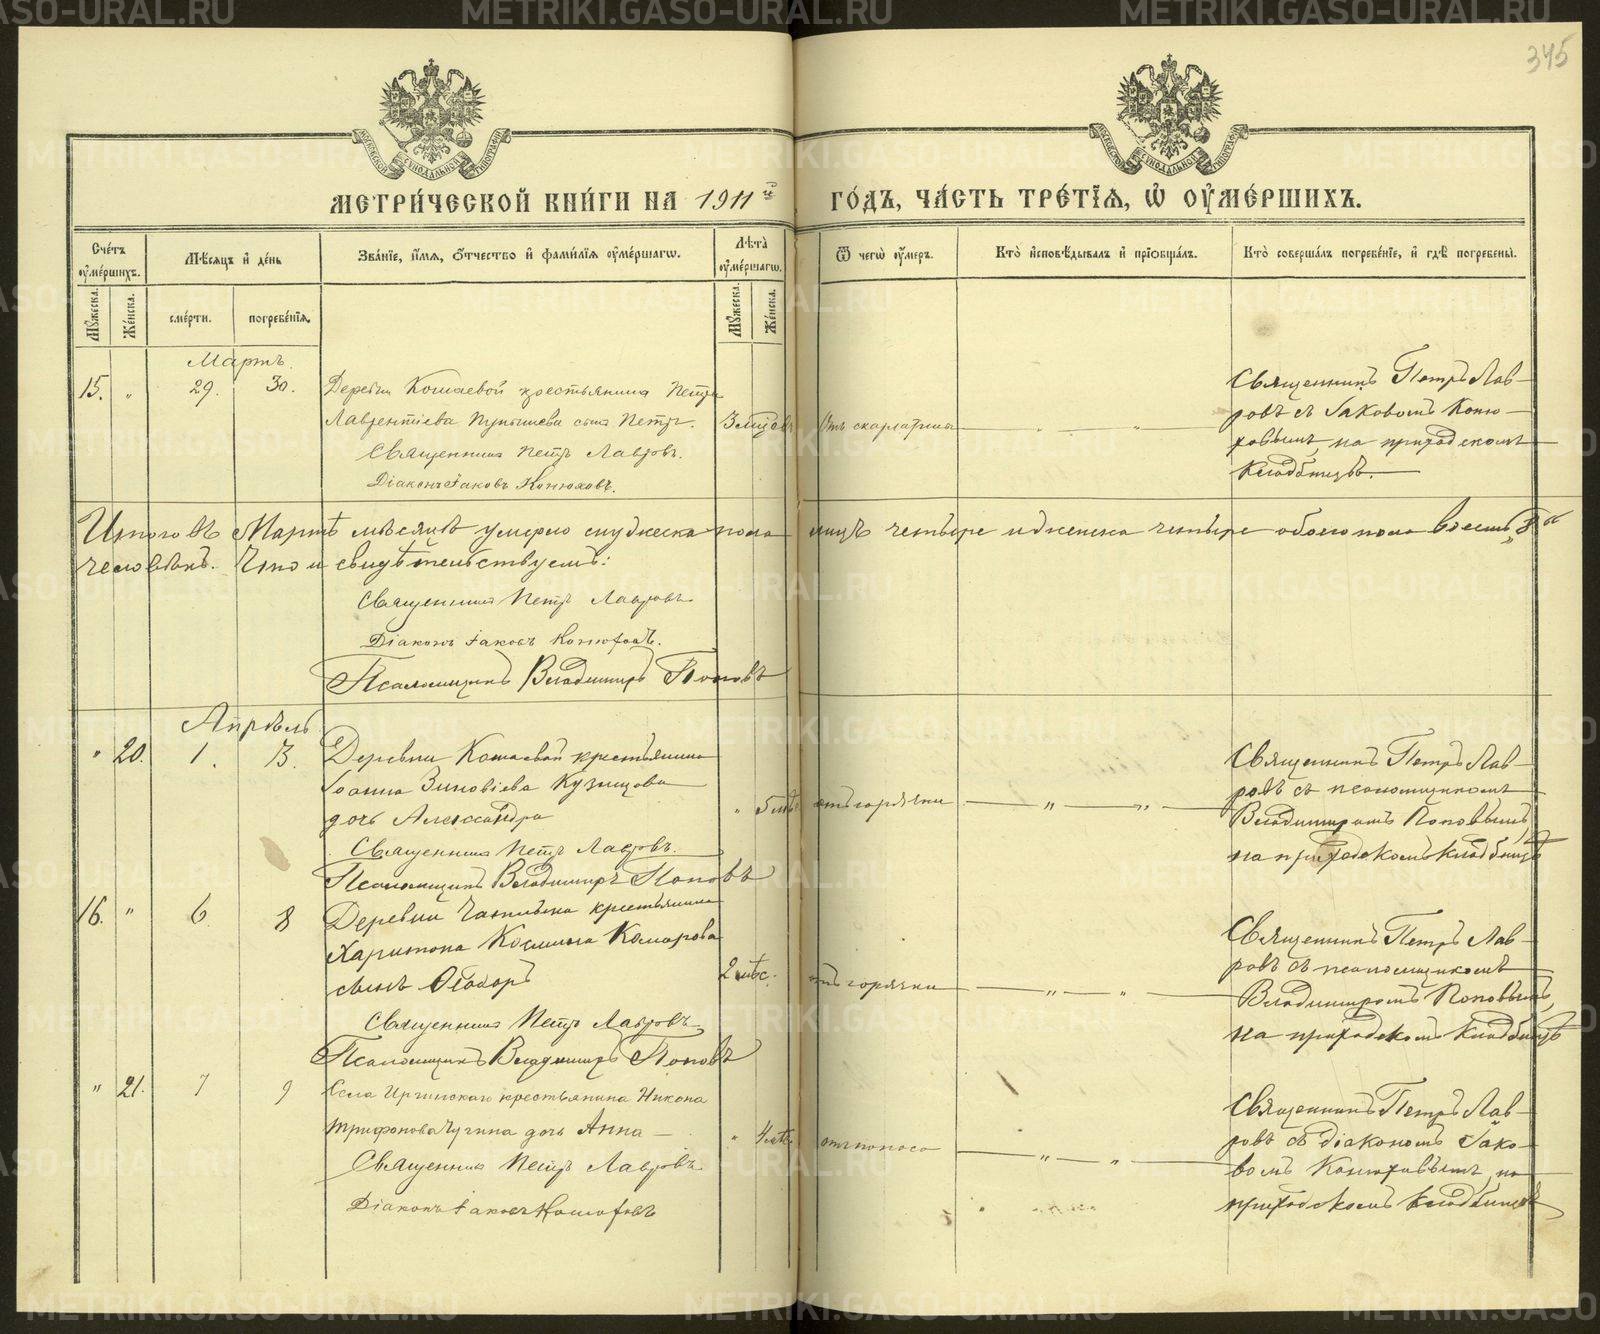 345
МЕТРИ́ЧЕСКОЙ КНИ́ГИ НА 1911й ГО́ДЪ, ЧА́СТЬ ТРЕ́ТІѦ, Ѡ҆ ОУ҆МЕ́РШИХЪ.
Сче́тъ оу҆ме́ршихъ.
Мѣ́сѧцъ и҆ де́нь
Зва́нїе, и҆́мѧ, ѻ҆́тчество и҆ фами́лїѧ оу҆ме́ршагѡ.
Лѣ́та оу҆ме́ршагѡ.
Ѿ чегѡ̀ оу҆́меръ.
Кто̀ и҆сповѣ́дывалъ и҆ прїѡбща́лъ.
Кто̀ соверша́лъ погребе́нїе, и҆ гдѣ̀ погребены̀.
Мꙋ́жеска.
Же́нска.
сме́рти.
погребе́нїѧ.
Мꙋ́жеска.
Же́нска.
Мартъ.
15. " 29. 30.
Деревни Кошаевой крестьянина Петра
Лаврентіева сынъ Петръ.
Священникъ Петръ Лавровъ.
Діаконъ Іаковъ Конюховъ.
Отъ скарлатины
Священникъ Петръ Лав-
ровъ съ Іаковомъ Коню-
ховымъ, на приходскомъ
кладбищѣ.
Итого въ Мартѣ мѣсяцѣ умерло мужеска пола лицъ четыре и женска четыре обоего пола восемь „8"
человѣкъ. Что и свидѣтельствуемъ:
Священникъ Петръ Лавровъ
Діаконъ Іаковъ Конюховъ.
Псаломщикъ Владимиръ Поповъ
Апрѣль
" 20. 1. 3.
Деревни Кошаевой крестьянина
Іоанна Зиновіева Кузнецова
дочь Александра
Священникъ Петръ Лавровъ.
Псаломщикъ Владимиръ Поповъ
" 5
отъ горячки
Священникъ Петръ Лав-
ровъ съ псаломщикомъ
Владимиромъ Поповымъ,
на приходскомъ кладбищѣ
16. " 6 8
Деревни крестьянина
Харитона Космина Комарова
сынъ Ѳеодоръ
Священникъ Петръ Лавровъ
Псаломщикъ Владимиръ Поповъ
2 мѣс.
отъ горячки
Священникъ Петръ Лав-
ровъ съ псаломщикомъ
Владимиромъ Поповымъ,
на приходскомъ кладбищѣ
" 21. 7 9
Села Иргинскаго крестьянина Никона
Трифонова Чугина дочь Анна
Священникъ Петръ Лавровъ
Діаконъ Іаковъ Конюховъ
" 4
отъ поноса
Священникъ Петръ Лав-
ровъ съ діакономъ Іако-
вомъ Конюховымъ, на
приходскомъ кладбищѣ
METRIKI.GASO-URAL.RU